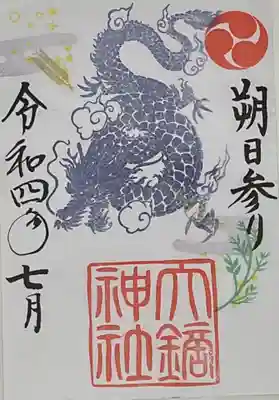 朔日参り
大鏑
神社
令和四年七月